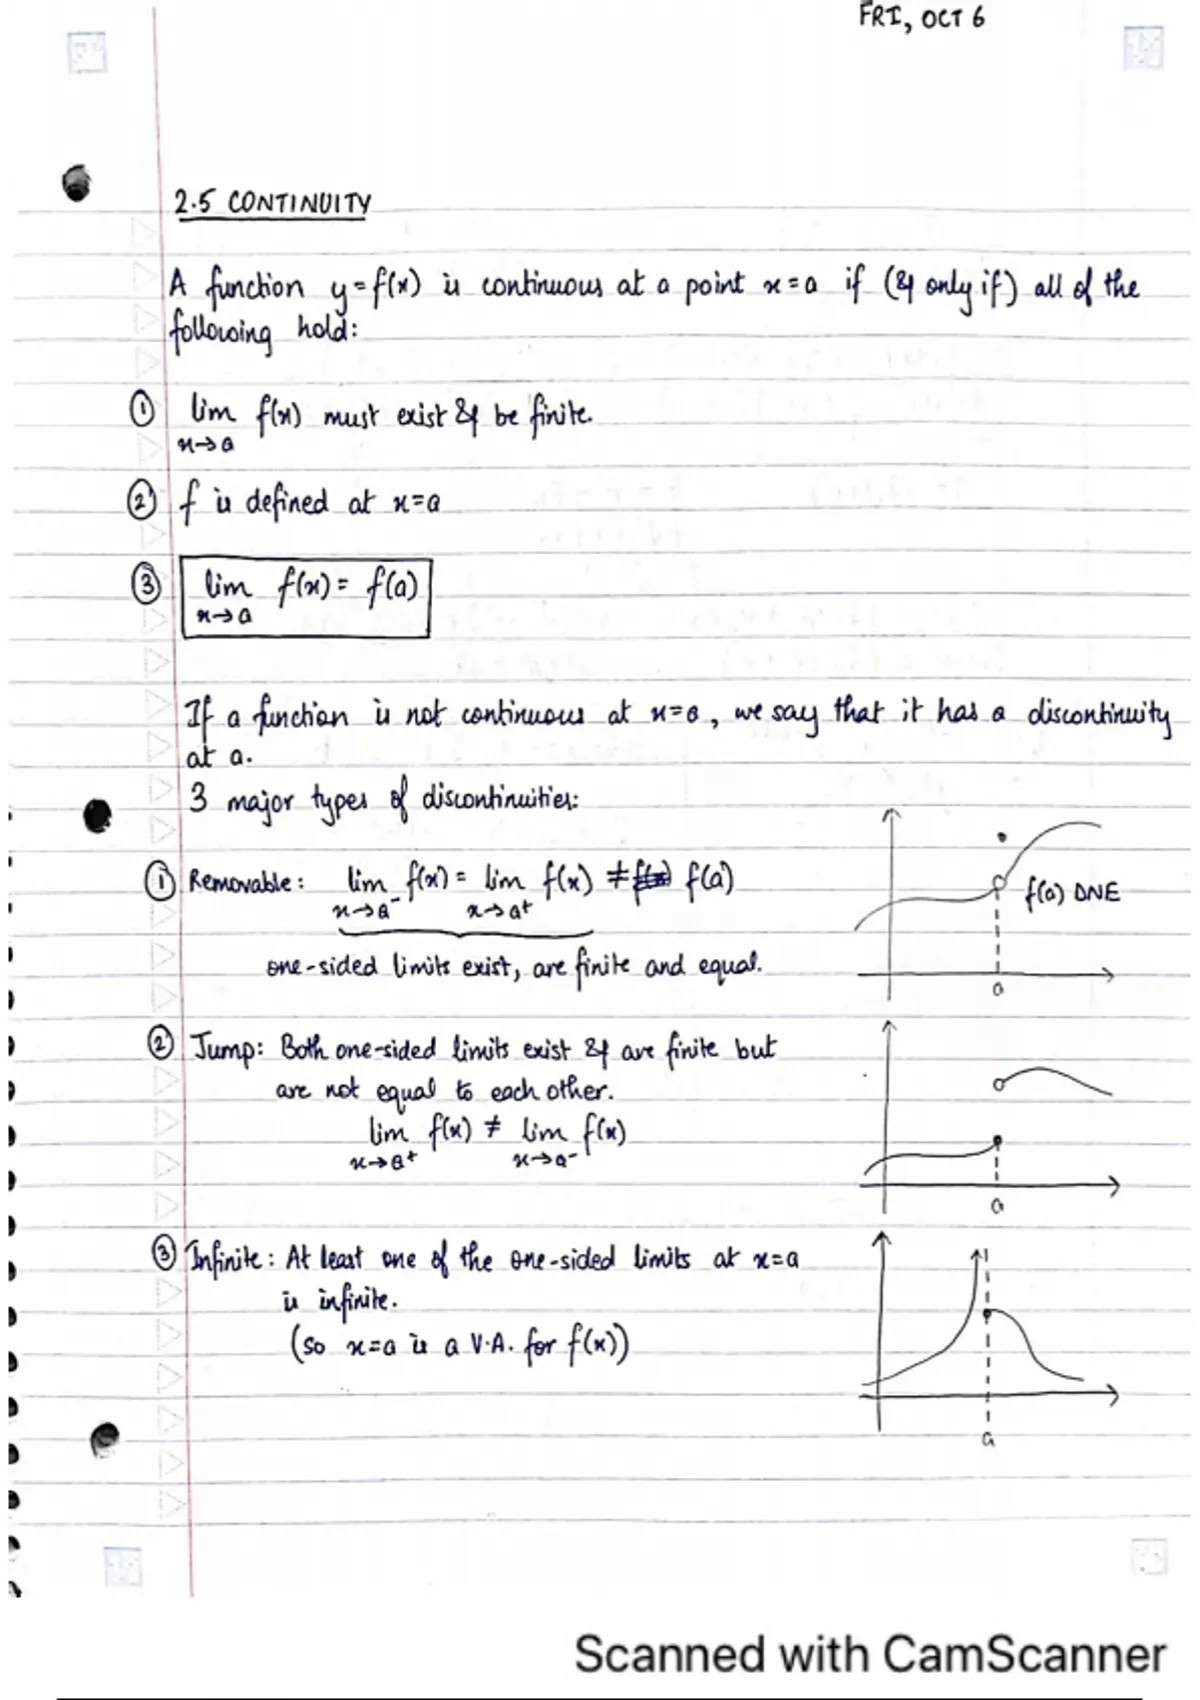 FRI, OCT 6
2.5 CONTINUITY
A function y=f(x) is continuous at a point x=a if (& only if) all of the
following hold:
① lim f(x) must exist & be finite.
x→a
② f is defined at x=a
③ lim f(x) = f(a)
x→a
If a function is not continuous at x=a, we say that it has a discontinuity
at a.
3 major types of discontinuities:
① Removable: lim f(x) = lim f(x) ≠ f(a)
x→a⁻ x→a⁺
one-sided limits exist, are finite and equal.
f(a) DNE
a
② Jump: Both one-sided limits exist & are finite but
are not equal to each other.
lim f(x) ≠ lim f(x)
x→a⁺ x→a⁻
a
③ Infinite: At least one of the one-sided limits at x=a
is infinite.
(so x=a is a V.A. for f(x))
a
Scanned with CamScanner